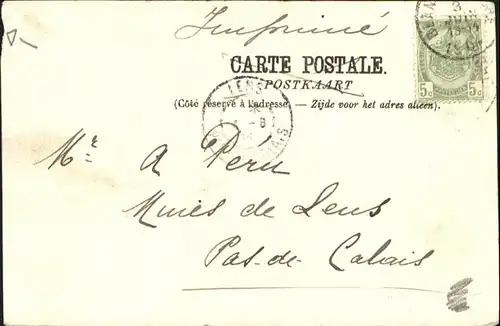 Imprimé
CARTE POSTALE.
POSTKAART
(Côté réservé à l'adresse. — Zijde voor het adres alleen).
5c 5c
LENS
Mr A Péru
Mines de Lens
Pas-de-Calais